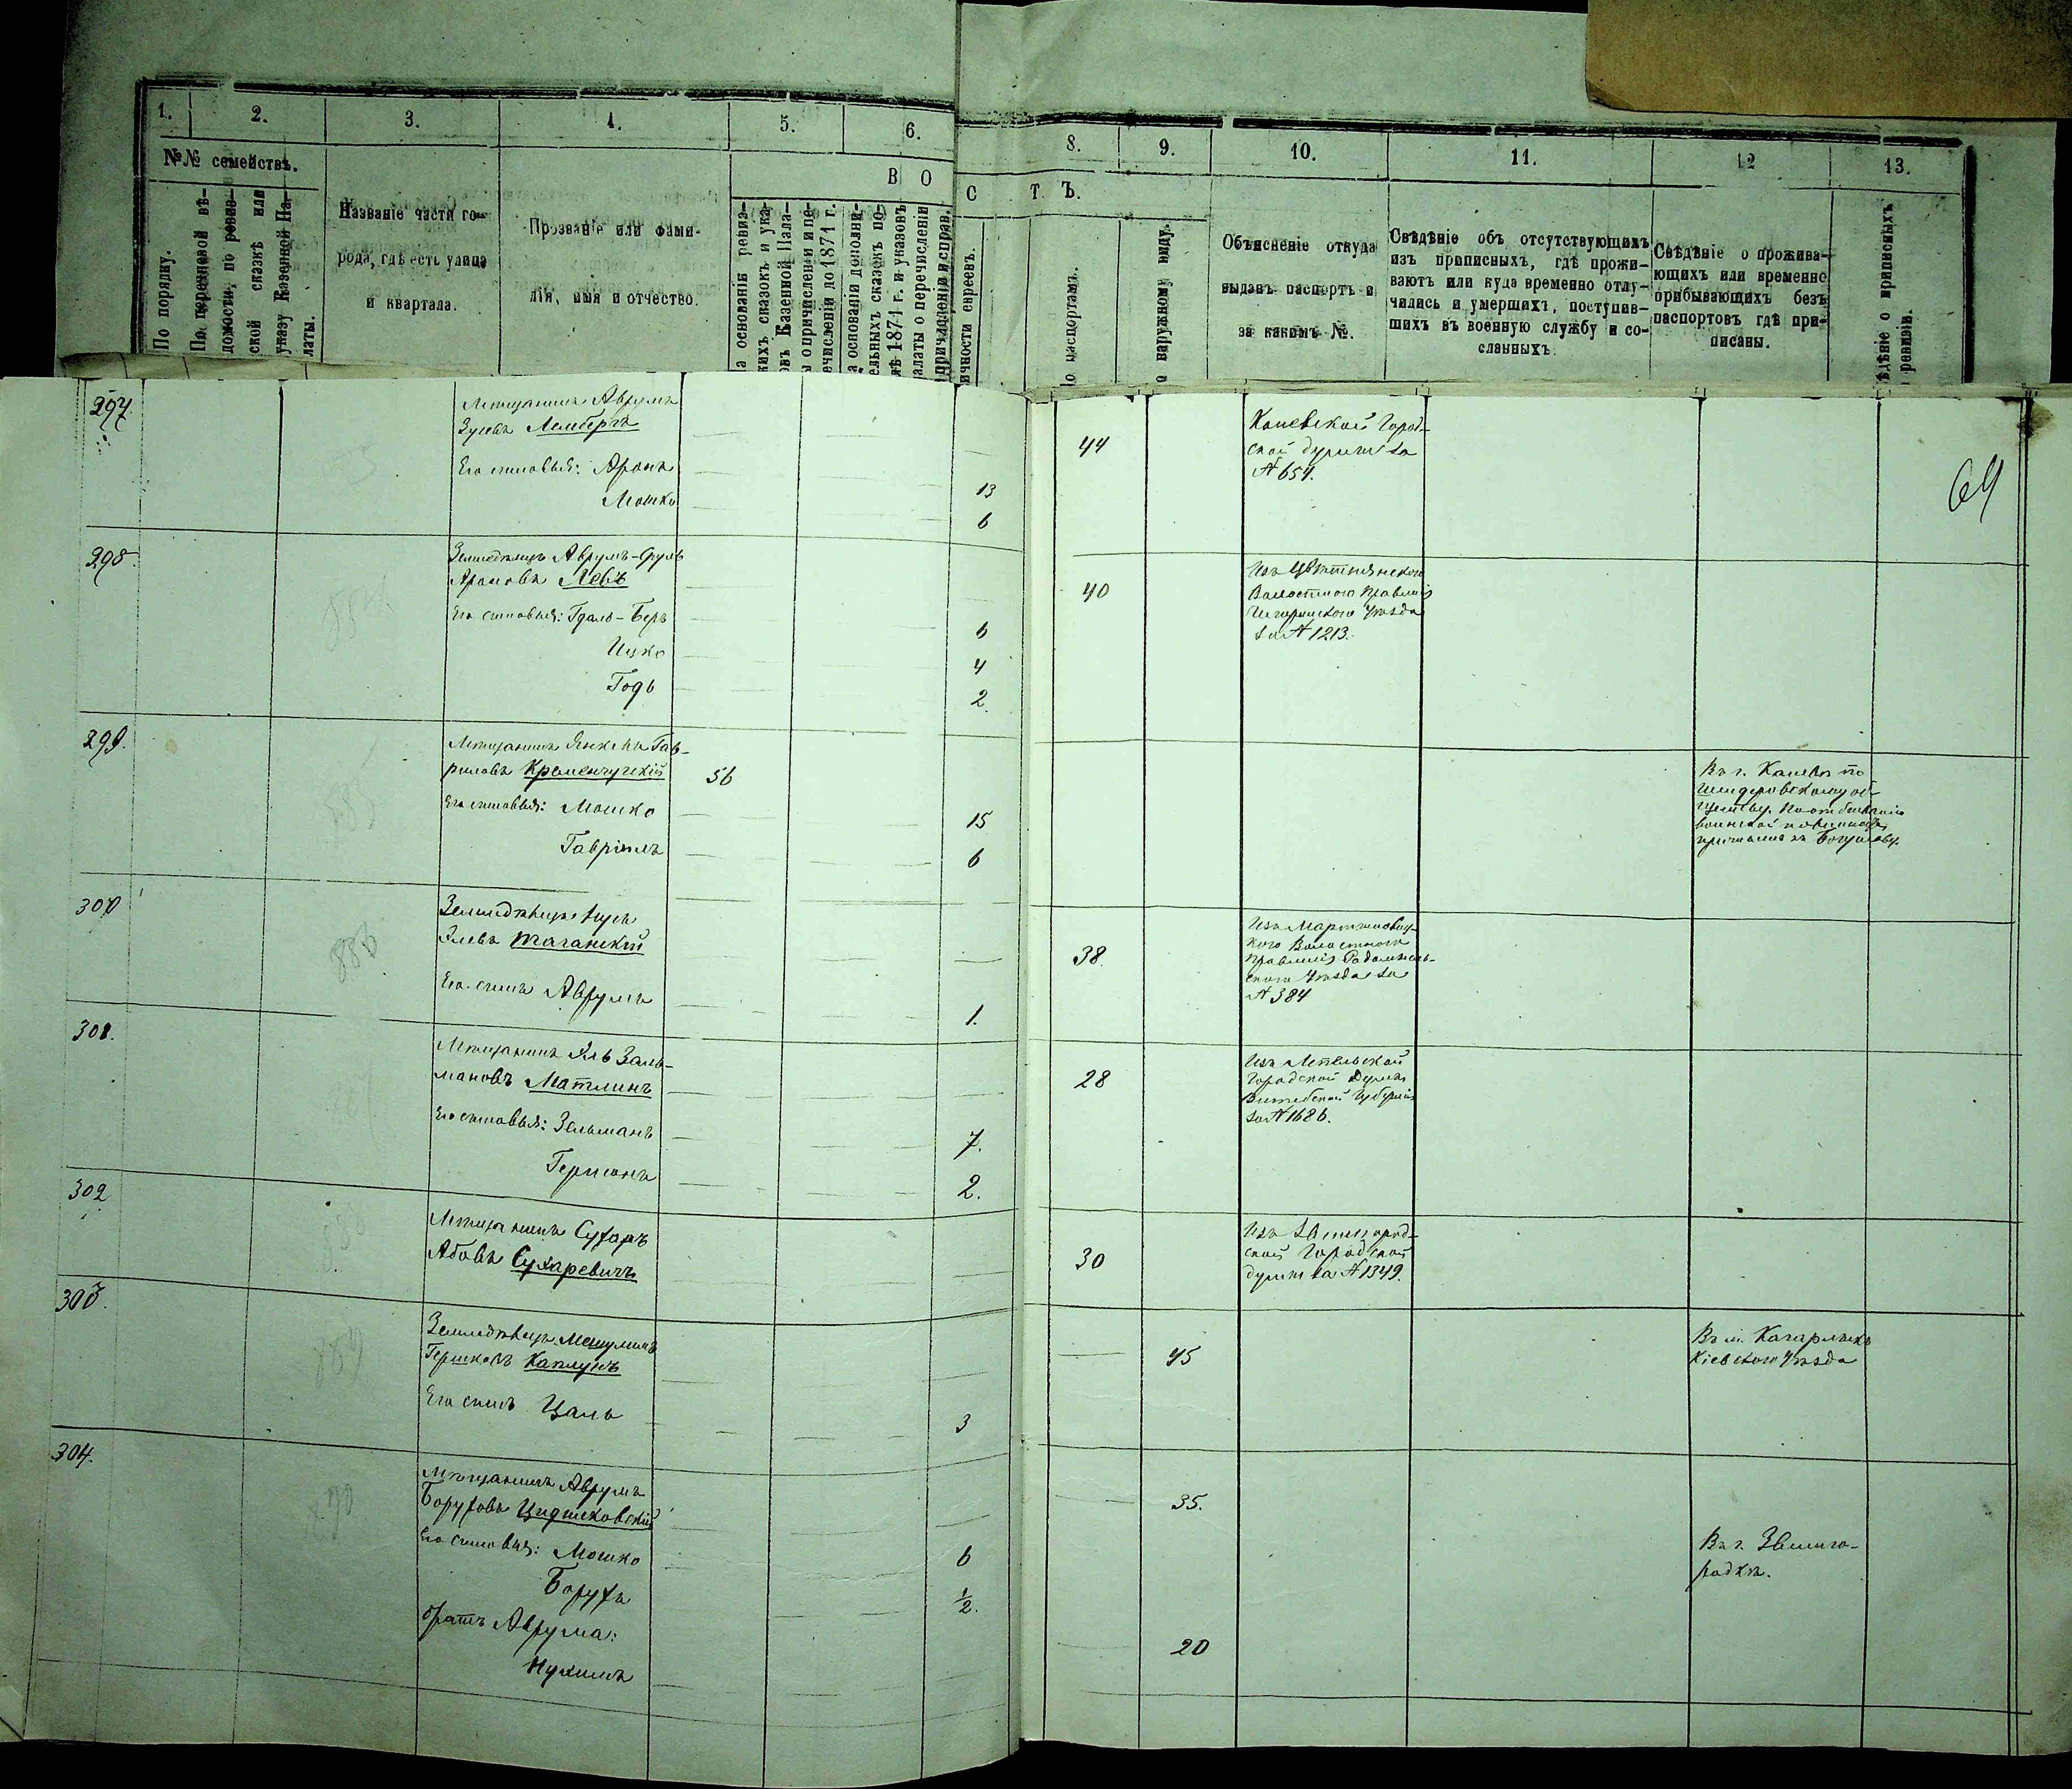 1. 2. 3. 4. 5. 6. 8. 9. 10. 11. 12 13.
№№ семействъ.
По порядку.
По перечневой вѣ-
домости, по ревиз-
ской сказкѣ или
указу Казенной Па-
латы.
Названіе части го-
рода, гдѣ есть улица
и квартала.
Прозваніе или фами-
лія, имя и отчество.
В О
С Т Ъ.
а основаніи ревиз-
кихъ сказокъ и ука-
овъ Казенной Пала-
ы о причисленіи и пе-
ечисленіи до 1871 г.
а основаніи дополни-
ельныхъ сказокъ по-
лѣ 1871 г. и указовъ
алаты о перечисленіи
ичности евреевъ.
о паспортамъ.
о наружному виду.
Объясненіе откуда
выданъ паспортъ и
за какимъ №.
Свѣдѣніе объ отсутствующихъ
изъ приписныхъ, гдѣ прожи-
ваютъ или куда временно отлу-
чились и умершихъ, поступив-
шихъ въ военную службу и со-
сланныхъ.
Свѣдѣніе о прожива-
ющихъ или временно
прибывающихъ безъ
паспортовъ гдѣ при-
писаны.
ѣдѣніе о приписныхъ
ревизіи.
64
297.
Мѣщанинъ Аврумъ
Зусевъ Лембергъ
44
Каневской Город-
ской думы за
№ 654.
Его сыновья: Аронъ 13
Мошко 6
298.
Земледѣлецъ Аврумъ-Сруль
Ароновъ Левъ
40
Волостного Правленія
Чигиринскаго Уѣзда
за № 1213.
Его сыновья: Гдаль-Беръ 6
Ицко 4
Годь 2.
299.
Мѣщанинъ Янкель Гав-
риловъ Кременчугскій 56
Въ г. Каневѣ по
Его сыновья: Мошко 15
Гавріилъ 6
воинской повинности
300
885
886
Земледѣлецъ
Элевъ Таганскій
38.
Изъ Мартыновс-
кого Волостного
Правленія Радомысль-
скаго Уѣзда за
№ 384
Его сынъ Аврумъ 1.
301.
Мѣщанинъ Эль Заль-
мановъ Матлинъ
28
Изъ Лепельской
Городской Думы
Витебской Губерніи
за № 1686.
Его сыновья: Зельманъ 7.
Гершонъ 2.
302
Мѣщанинъ Сухаръ
Абовъ Сухаревичъ
30
Изъ Звенигород-
ской Городской
думы за № 1349.
303.
889
Земледѣлецъ
Гершковъ Каплунъ
45
Въ м. Кагарлыкѣ
Кіевскаго Уѣзда
Его сынъ Цаль 3
304.
890
Мѣщанинъ Аврумъ
Боруховъ
35.
Въ г. Звениго-
родкѣ.
Его сыновья: Мошко 6
Борухъ 1/2.
братъ Аврума:
Нухимъ 20